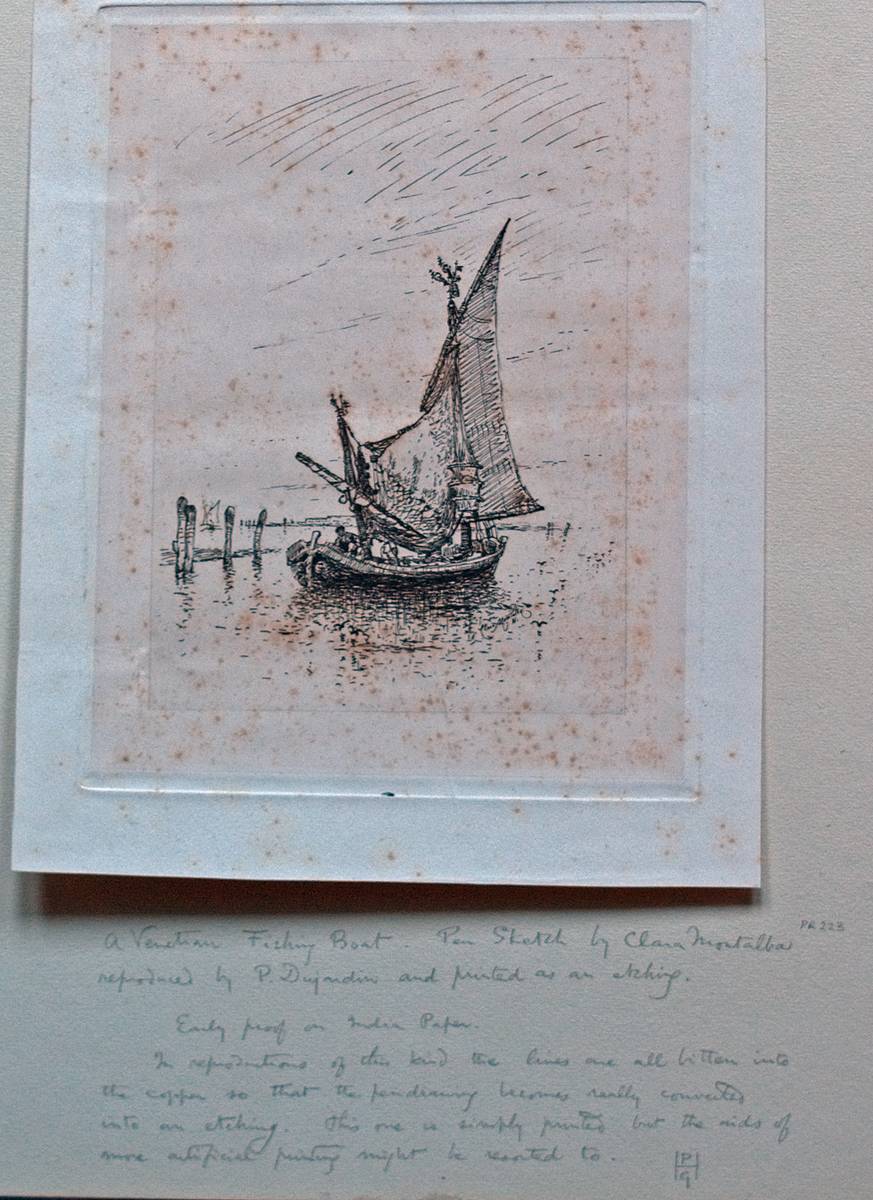 A Venetian Fishing Boat. Pen Sketch by Clara Montalba PR 223
reproduced by P. Dujardin and printed as an etching.
Early proof on India Paper.
In reproductions of this kind the lines are all bitten into
the copper so that the pendrawing becomes really converted
into an etching. This one is simply printed but the aids of
more artificial printing might be resorted to.